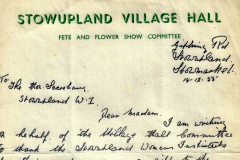 STOWUPLAND VILLAGE HALL
FETE AND FLOWER SHOW COMMITTEE
Gipping Rd
Stowupland
Stowmarket.
To The Hon. Secretary,
Stowupland W.I.
Dear Madam.
I am writing
behalf of the Village Hall Committee
to thank the Stowupland Women Institute